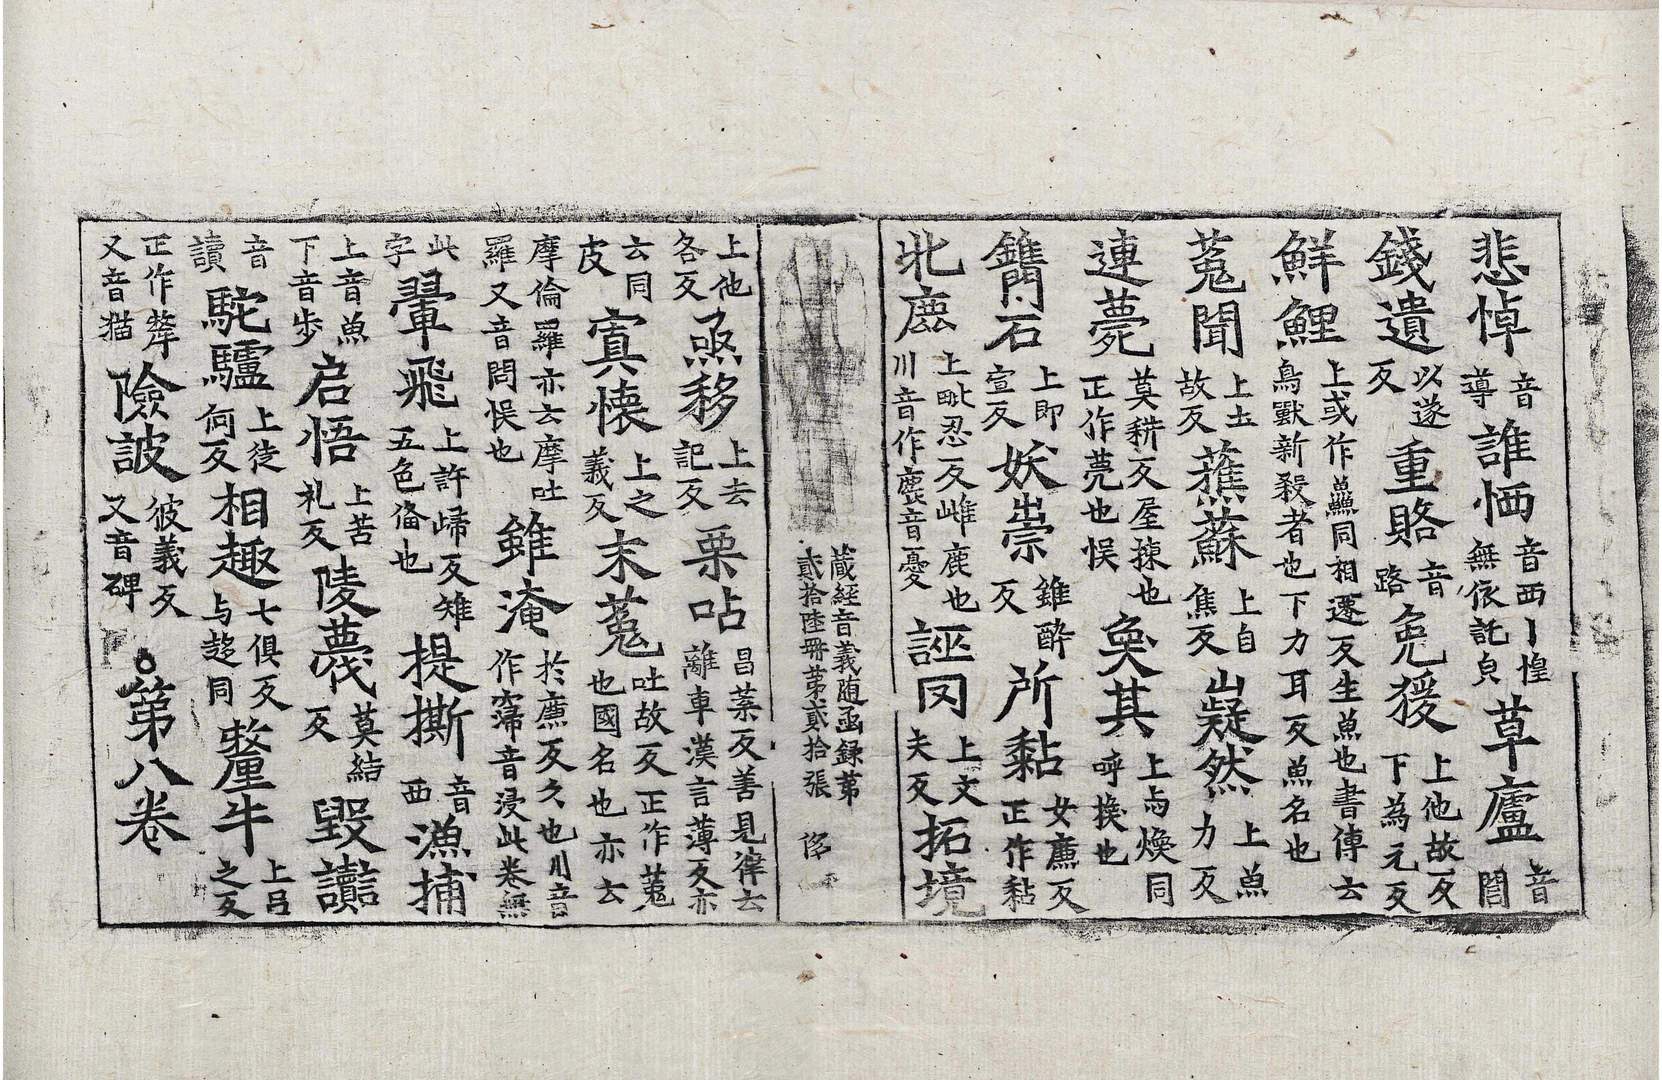 悲悼音導誰恓音西丨惶無依託皃草廬音閭
錢遺以遂反重賂音路免猨上他故反下為元反
鮮鯉上或作鱻同相遷反生魚也書傳云鳥獸新殺者也下力耳反魚名也
菟聞上土故反蕉蘇上自焦反嶷然上魚力反
連薨莫耕反屋揀也正作甍也悮奐其上与煥同呼換也
鐫石上即宣反妖祟雖醉反所黏女廉反正作黏
北麀上毗忍反雌鹿也川音作麀音憂誣罔上文夫反拓境
藏經音義随函録苐貳拾陸冊苐貳拾張
上他各反亟移上去記反栗呫昌葉反善見律云離車漢言薄反亦
云同皮寘懷上之義反末菟吐故反正作菟也國名也亦云
摩倫羅亦云摩吐羅又音問悮也雖淹於廉反久也川音作𩂣音浸此卷無
此字翬飛上許歸反雉五色俻也提撕音西漁捕
上音魚下音步启悟上苦礼反陵蔑莫結反毀讟
音讀駞驢上徒何反相趣七俱反与趍同犛牛上吕之反
正作犛又音猫險詖彼義反又音碑。第八卷